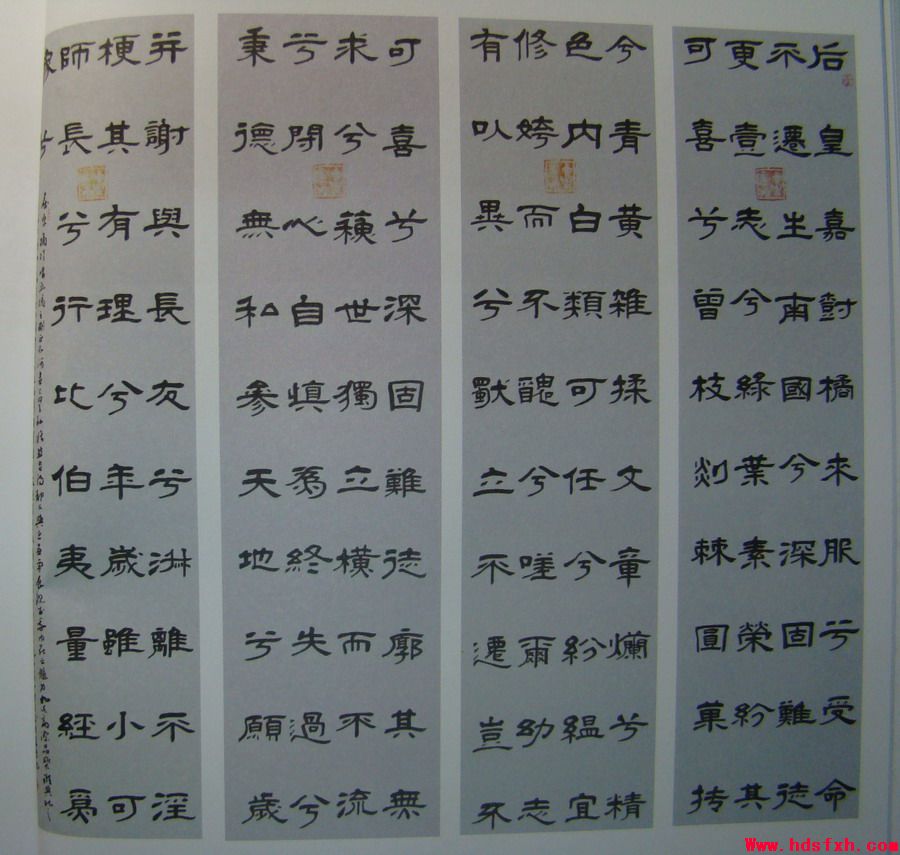 后皇嘉尌橘来服兮受命
不遷生南國兮深固難徙
更壹志兮緑葉素榮紛其
可喜兮曾枝剡棘圓菓摶
兮青黄雜揉文章爛兮精
色内白類可任兮紛緼宜
修姱而不醜兮嗟爾幼志
有以異兮獨立不遷豈不
可喜兮深固難徙廓其無
求兮蘇世獨立横而不流
兮閉心自慎爲終失過兮
秉德無私參天地兮願歲
并謝與長友兮淋離不淫
梗其有理兮年歲雖小可
師長兮行比伯夷量經爲
像兮
Www.hdsfxh.com